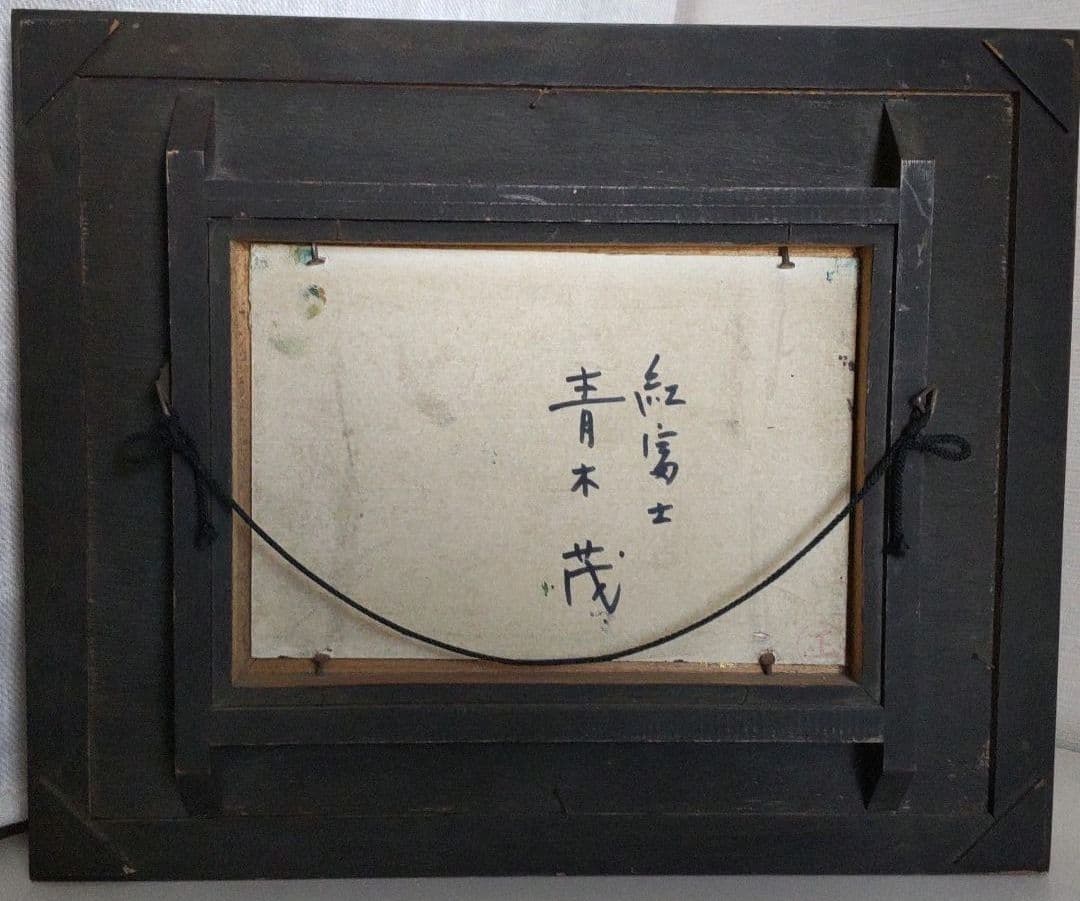 紅富士
青木 茂